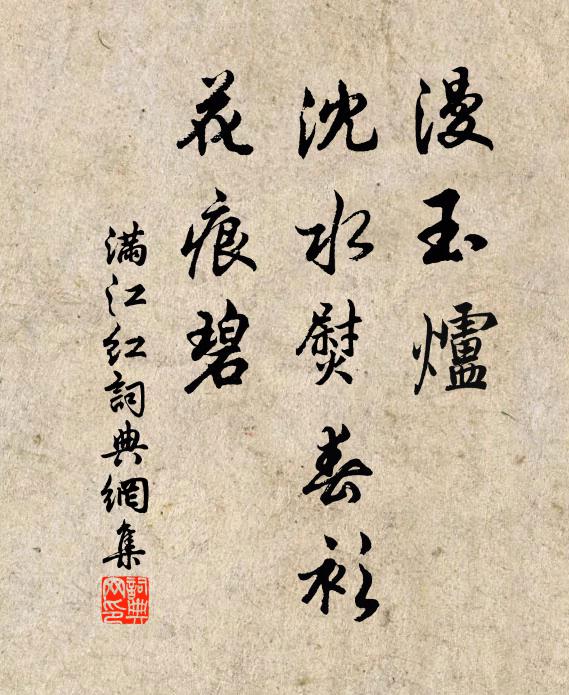 漫玉爐
沈水熨春衫
花痕碧
滿江红詞典網集
詞典
网印